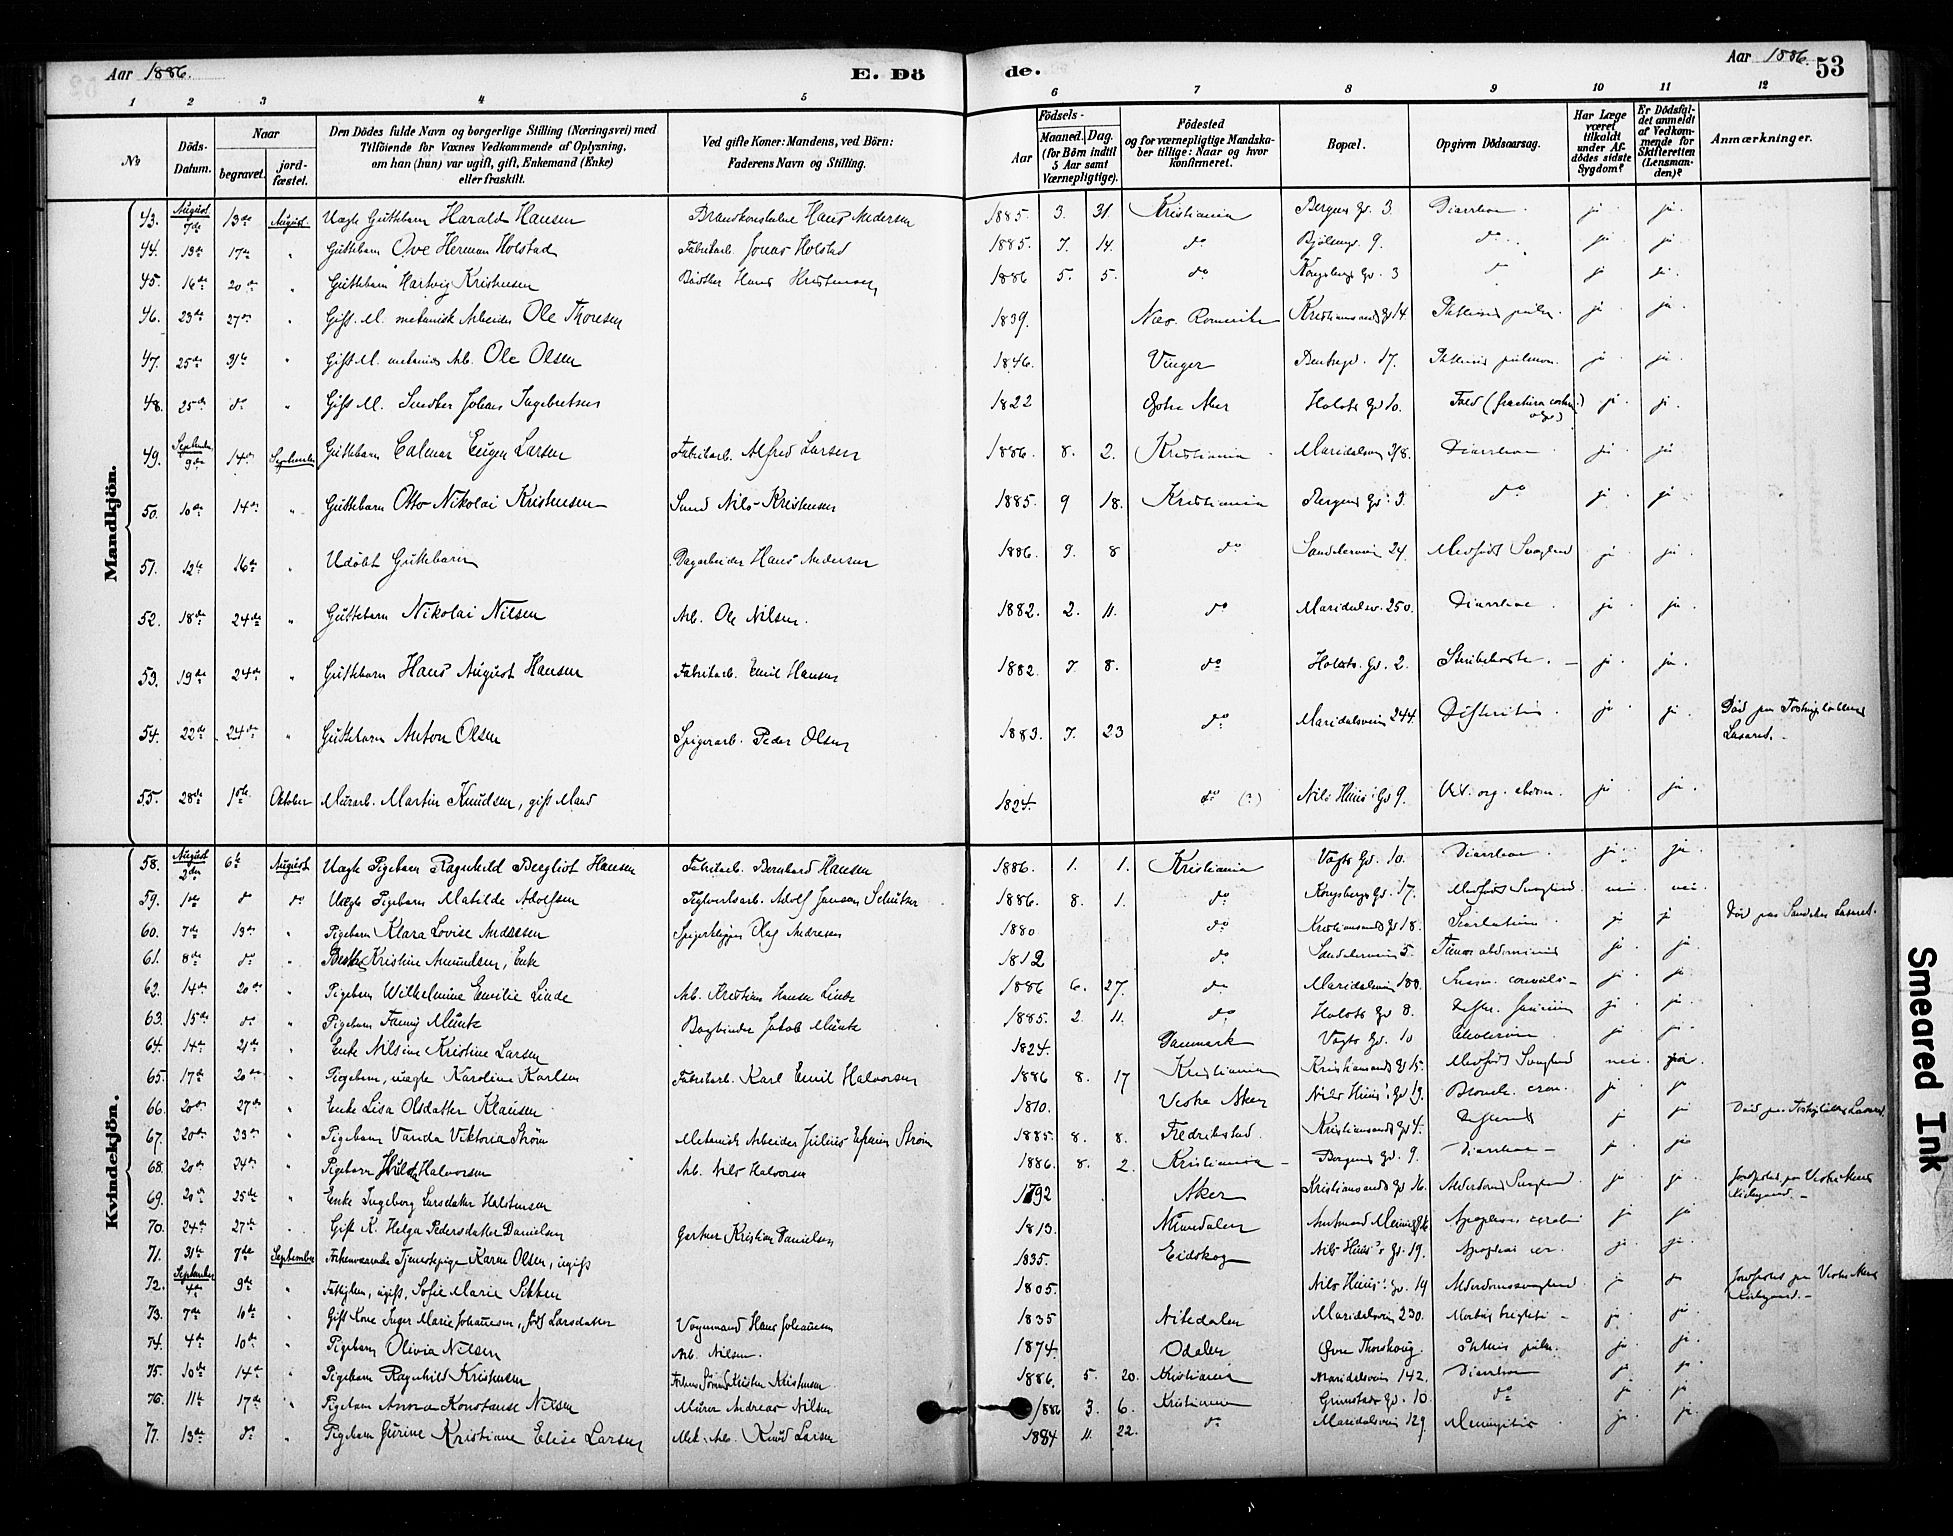 Aar 1886.
E. Dö
de.
Aar 1886.
53
1 2 3 4 5 6 7 8 9 10 11 12
No
Döds-Datum.
Naar
begravet.
jord-fæstet.
Den Dödes fulde Navn og borgerlige Stilling (Næringsvei) med
Tilföiende for Voxnes Vedkommende af Oplysning,
om han (hun) var ugift, gift, Enkemand (Enke)
eller fraskilt.
Ved gifte Koner: Mandens, ved Börn:
Faderens Navn og Stilling.
Födsels-
Aar
Maaned. Dag.
(for Börn indtil
5 Aar samt
Værnepligtige).
Födested
og for værnepligtige Mandska-
ber tillige: Naar og hvor
konfirmeret.
Bopæl.
Opgiven Dödsaarsag.
Har Læge
været
tilkaldt
under Af-
dödes sidste
Sygdom?
Er Dödsfal-
det anmeldt
af Vedkom-
mende for
Skifteretten
(Lensman-
den)?
Anmærkninger.
Mandkjön.
43. August 7de 13de August. Uægte Guttebarn Harald Hansen Hans Andersen 1885. 3. 31. Kristiania Bergens Gd. 3. Diarrhoe. ja. ja.
44. 13de 17de " Guttebarn Ove Herman Holstad Fabrikarb. Jonas Holstad 1885. 7. 14. do 9. do ja ja.
45. 16de 20de " Guttebarn Hartvig Kristensen Bödker Hans Kristensen 1886 5. 5. do Kongsbergs Gd. 3 do ja ja.
46. 23de 27de " Gift M. mekanisk Arbeider Ole Thoresen 1839. Nes. Romerike Kristiansands Gd 14 Phthisis pulm. ja ja.
47. 25de 31te " Gift M. mekanisk Arb. Ole Olsen 1846. Vinger 17. Phthisis pulmon. ja. ja.
48. 25de do " Gift M. Snedker Johan Ingebretsen 1822 Östre Aker Holsts Gd 10. Fald (fractura ja. ja.
49. September 9de 14de September Guttebarn Calmar Eugen Larsen Fabrikarb. Alfred Larsen 1886. 8. 2. Kristiania Maridalsvei Diarrhoe ja. ja.
50. 10de 14de " Guttebarn Otto Nikolai Kristensen Nils Kristensen 1885. 9 18. Kristiania Bergens Gd. 3. do ja. ja.
51. 12te 16de " Udöbt Guttebarn Dagarbeider Hans Andersen 1886. 9. 8 do Sandakerveien 24 Medfödt Svaghed ja. ja.
52. 18de 24de " Guttebarn Nikolai Nilsen Arb. Ole Nilsen. 1882. 2. 11. do Maridalsv. 250. Diarrhoe. ja. ja.
53. 19de 24de " Guttebarn Hans August Hansen Fabrikarb. Emil Hansen 1882. 7. 8. do Holsts Gd. 2. Strubehoste. ja. ja.
54. 22de 24de " Guttebarn Anton Olsen Spigerarb. Peder Olsen 1883. 7. 23 do Maridalsveien 244. Difteritis ja. ja. Död paa Lasaret.
55. 28de 1ste Oktober Murarb. Martin Knudsen, gift Mand 1824. do (?) Nils Huus' Gd 9. Vit. org. abdom. ja. ja.
Kvindekjön.
58. August 2den 6te August Uægte Pigebarn Ragnhild Bergliot Hansen Fabrikarb. Bernhard Hansen 1886. 1. 1. Kristiania Vogts Gd. 10. Diarrhoe. ja. ja.
59. 1ste do do Uægte Pigebarn Matilde Adolfsen Teglverksarb. Adolf Janson 1886. 8. 1. do Kongsbergs Gd. 17. Medfödt Svaghed nei. nei.
60. 7de 13de " Pigebarn Klara Lovise Andresen Andresen 1880 do Kristiansands Gd 18. Scarlatina ja ja Död paa Sandaker Lasaret.
61. 8de do " Kristine Amundsen, Enke 1812 do Sandakerveien 5. Tumor abdominis ja. ja.
62. 14de 20de " Pigebarn Wilhelmine Emilie Linde Arb. Kristian Hansen Linde 1886 6. 27. do Maridalsvei 180. ja. ja.
63. 15de do " Pigebarn Fanny Munk Bogbinder Jakob Munk 1885. 2. 11. do Holsts Gd 8. ja. ja.
64. 14de 21de " Enke Nilsine Kristine Larsen 1824. Danmark Vogts Gd. 10 Cholerine ja. ja.
65. 17de 20de " Pigebarn, uægte Karoline Karlsen Fabrikarb. Karl Emil Halvorsen 1886 8. 17 Kristiania Kristiansands Gd 15. Medfödt Svaghed nei ja.
66. 20de 27de " Enke Lisa Olsdatter Klausen 1810. Vestre Aker Nils Huus' Gd 19. Bronch. ja. ja
67. 20de 23de " Pigebarn Vanda Viktoria Ström Mekanisk Arbeider Julius Efraim Ström 1885. 8. 8. Fredrikstad. Kristiansands Gd 4. ja ja Död paa Lasaret.
68. 20de 24de " Pigebarn Hulda Halvorsen Arb. Nils Halvorsen 1886. 8. 2. Kristiania Bergens Gd. 9. Diarrhoe ja. ja
69. 20de 25de " Enke Ingeborg Larsdatter Halstensen 1792 Aker Kristiansands Gd 16. Alderdoms Svaghed ja ja. Jordfæstet paa Vestre Akers Kirkegaard.
70. 24de 27de " Gift K. Helga Pedersdatter Danielsen Gartner Kristian Danielsen 1813. Numedalen Apoplexia cerebri ja ja.
71. 31te 7de September Forhenværende Tjenestepige Karen Olsen, ugift 1835. Eidskog Nils Huus's Gd. 19. Apoplexi cer. ja. ja.
72. September 4de 9de " Fattiglem, ugift, Sofie Marie Sikken 1805. Nils Huus' Gd. 19 Alderdomssvaghed. ja do Jordfæstet paa Vestre Akers Kirkegaard.
73. 7de 10de " Gift Kone Inger Marie Johansen, född Larsdatter Vognmand Hans Johansen 1835 Nitedalen Maridalsvei 230. Morbus brightii ja. ja.
74. 4de 10de " Pigebarn Olivia Nilsen Arb. Nilsen. 1874. Odalen Övre Thorshoug. Phthisis pulm. ja ja.
75. 10de 14de " Pigebarn Ragnhild Kristensen Kristensen. 1886. 5. 20. Kristiania Maridalsvei 142. Diarrhoe ja. ja.
76. 11te 17de " Pigebarn Anna Konstanse Nilsen Murer Andreas Nilsen 1886 3. 6. Kristiania Grimstads Gd. 10. do ja. ja.
77. 13de do " Pigebarn Gurine Kristiane Elise Larsen Mek. Arb. Knud Larsen 1884 11. 22. do Maridalsvein 129. Meningitis ja. ja.
Smeared Ink